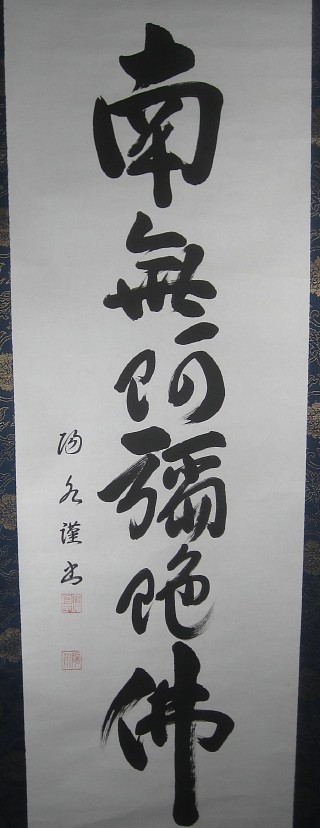 南無阿彌陀佛
陽舟謹書